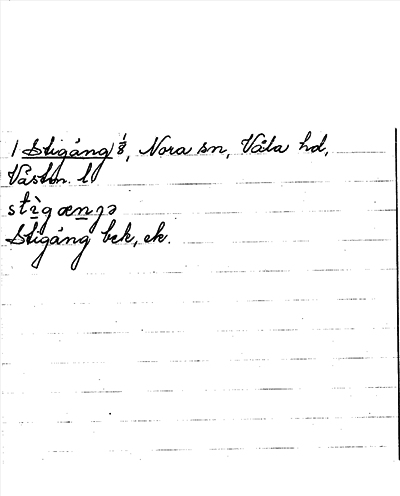 1 Stigång 1/8, Nora sn, Våla hd,
Västm. l
stìgænɟə
Stigång bek, ek.